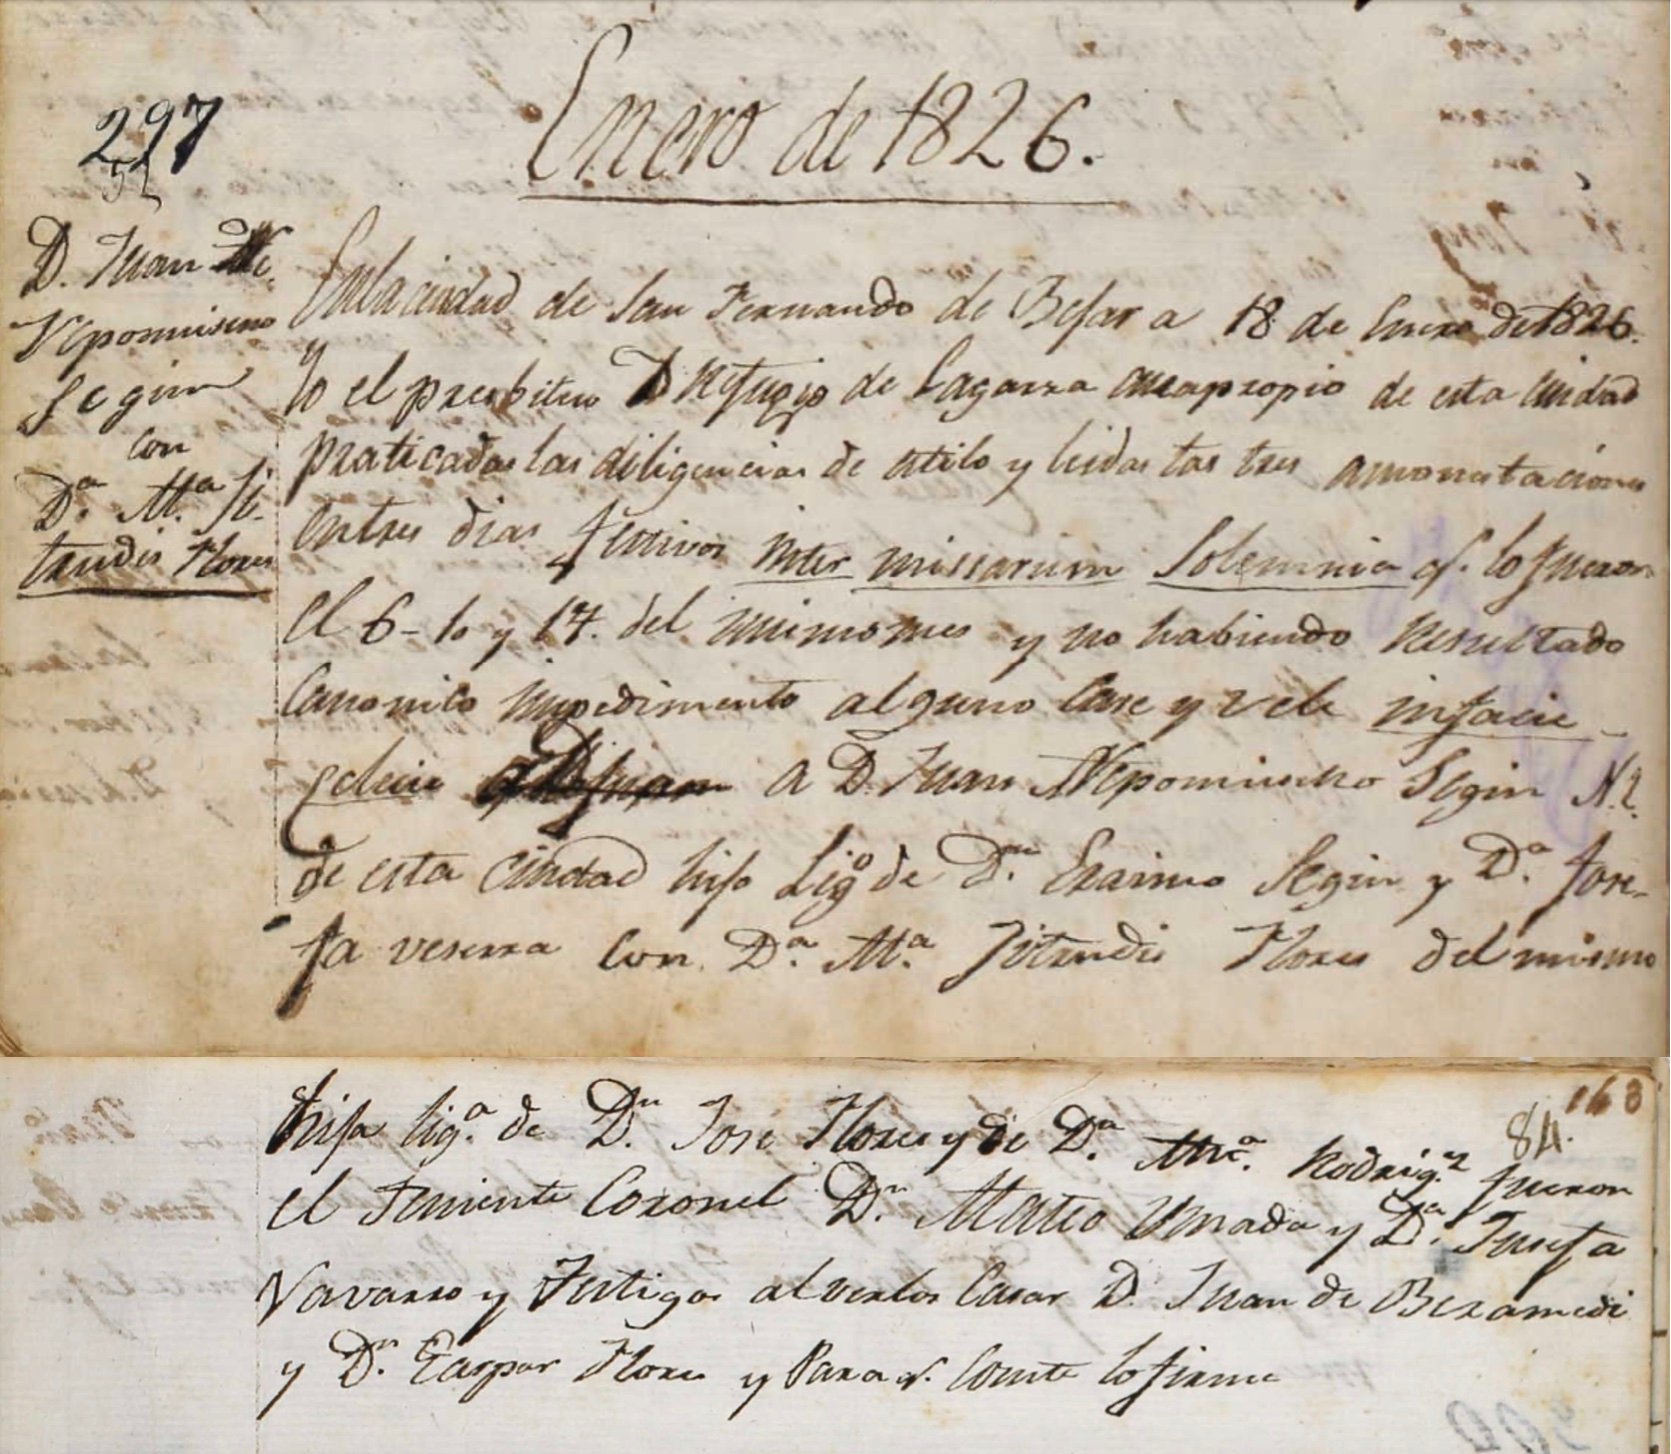 297
51
Enero de 1826.
D. Juan Ne
Nepomuseno
Segin
con
Dª. Mª. Ji-
trudis Flores
En la ciudad de San Fernando de Bejar a 18 de Enero de 1826.
Yo el presbitero D Refugio de Lagarza cura propio de esta ciudad
praticadas las diligencias de estilo y leidas las tres amonestaciones
en tres dias festivos inter missarum Solemnia q. lo fueron
el 6- 10 y 14. del mismo mes y no habiendo resultado
Canonico impedimento alguno Case y vele infacie
eclecie a D. Juan Nepomuseno Segin N.
de esta Ciudad hijo Ligº de Dn. Erasmo Segin y Dª. Jose-
fa veserra con Dª. Mª. Jitrudis Flores del mismo
163
84.
hija ligª. de Dn. Jose Flores y de Dª. Mª. Rodrigz fueron
el Teniente Coronel Dn. Mateo Umada y Dª. Jusefa
Navarro y Testigos al verlos Casar D. Juan de Beramedi
y Dn. Gaspar Flores y Para q. Conste lo firme